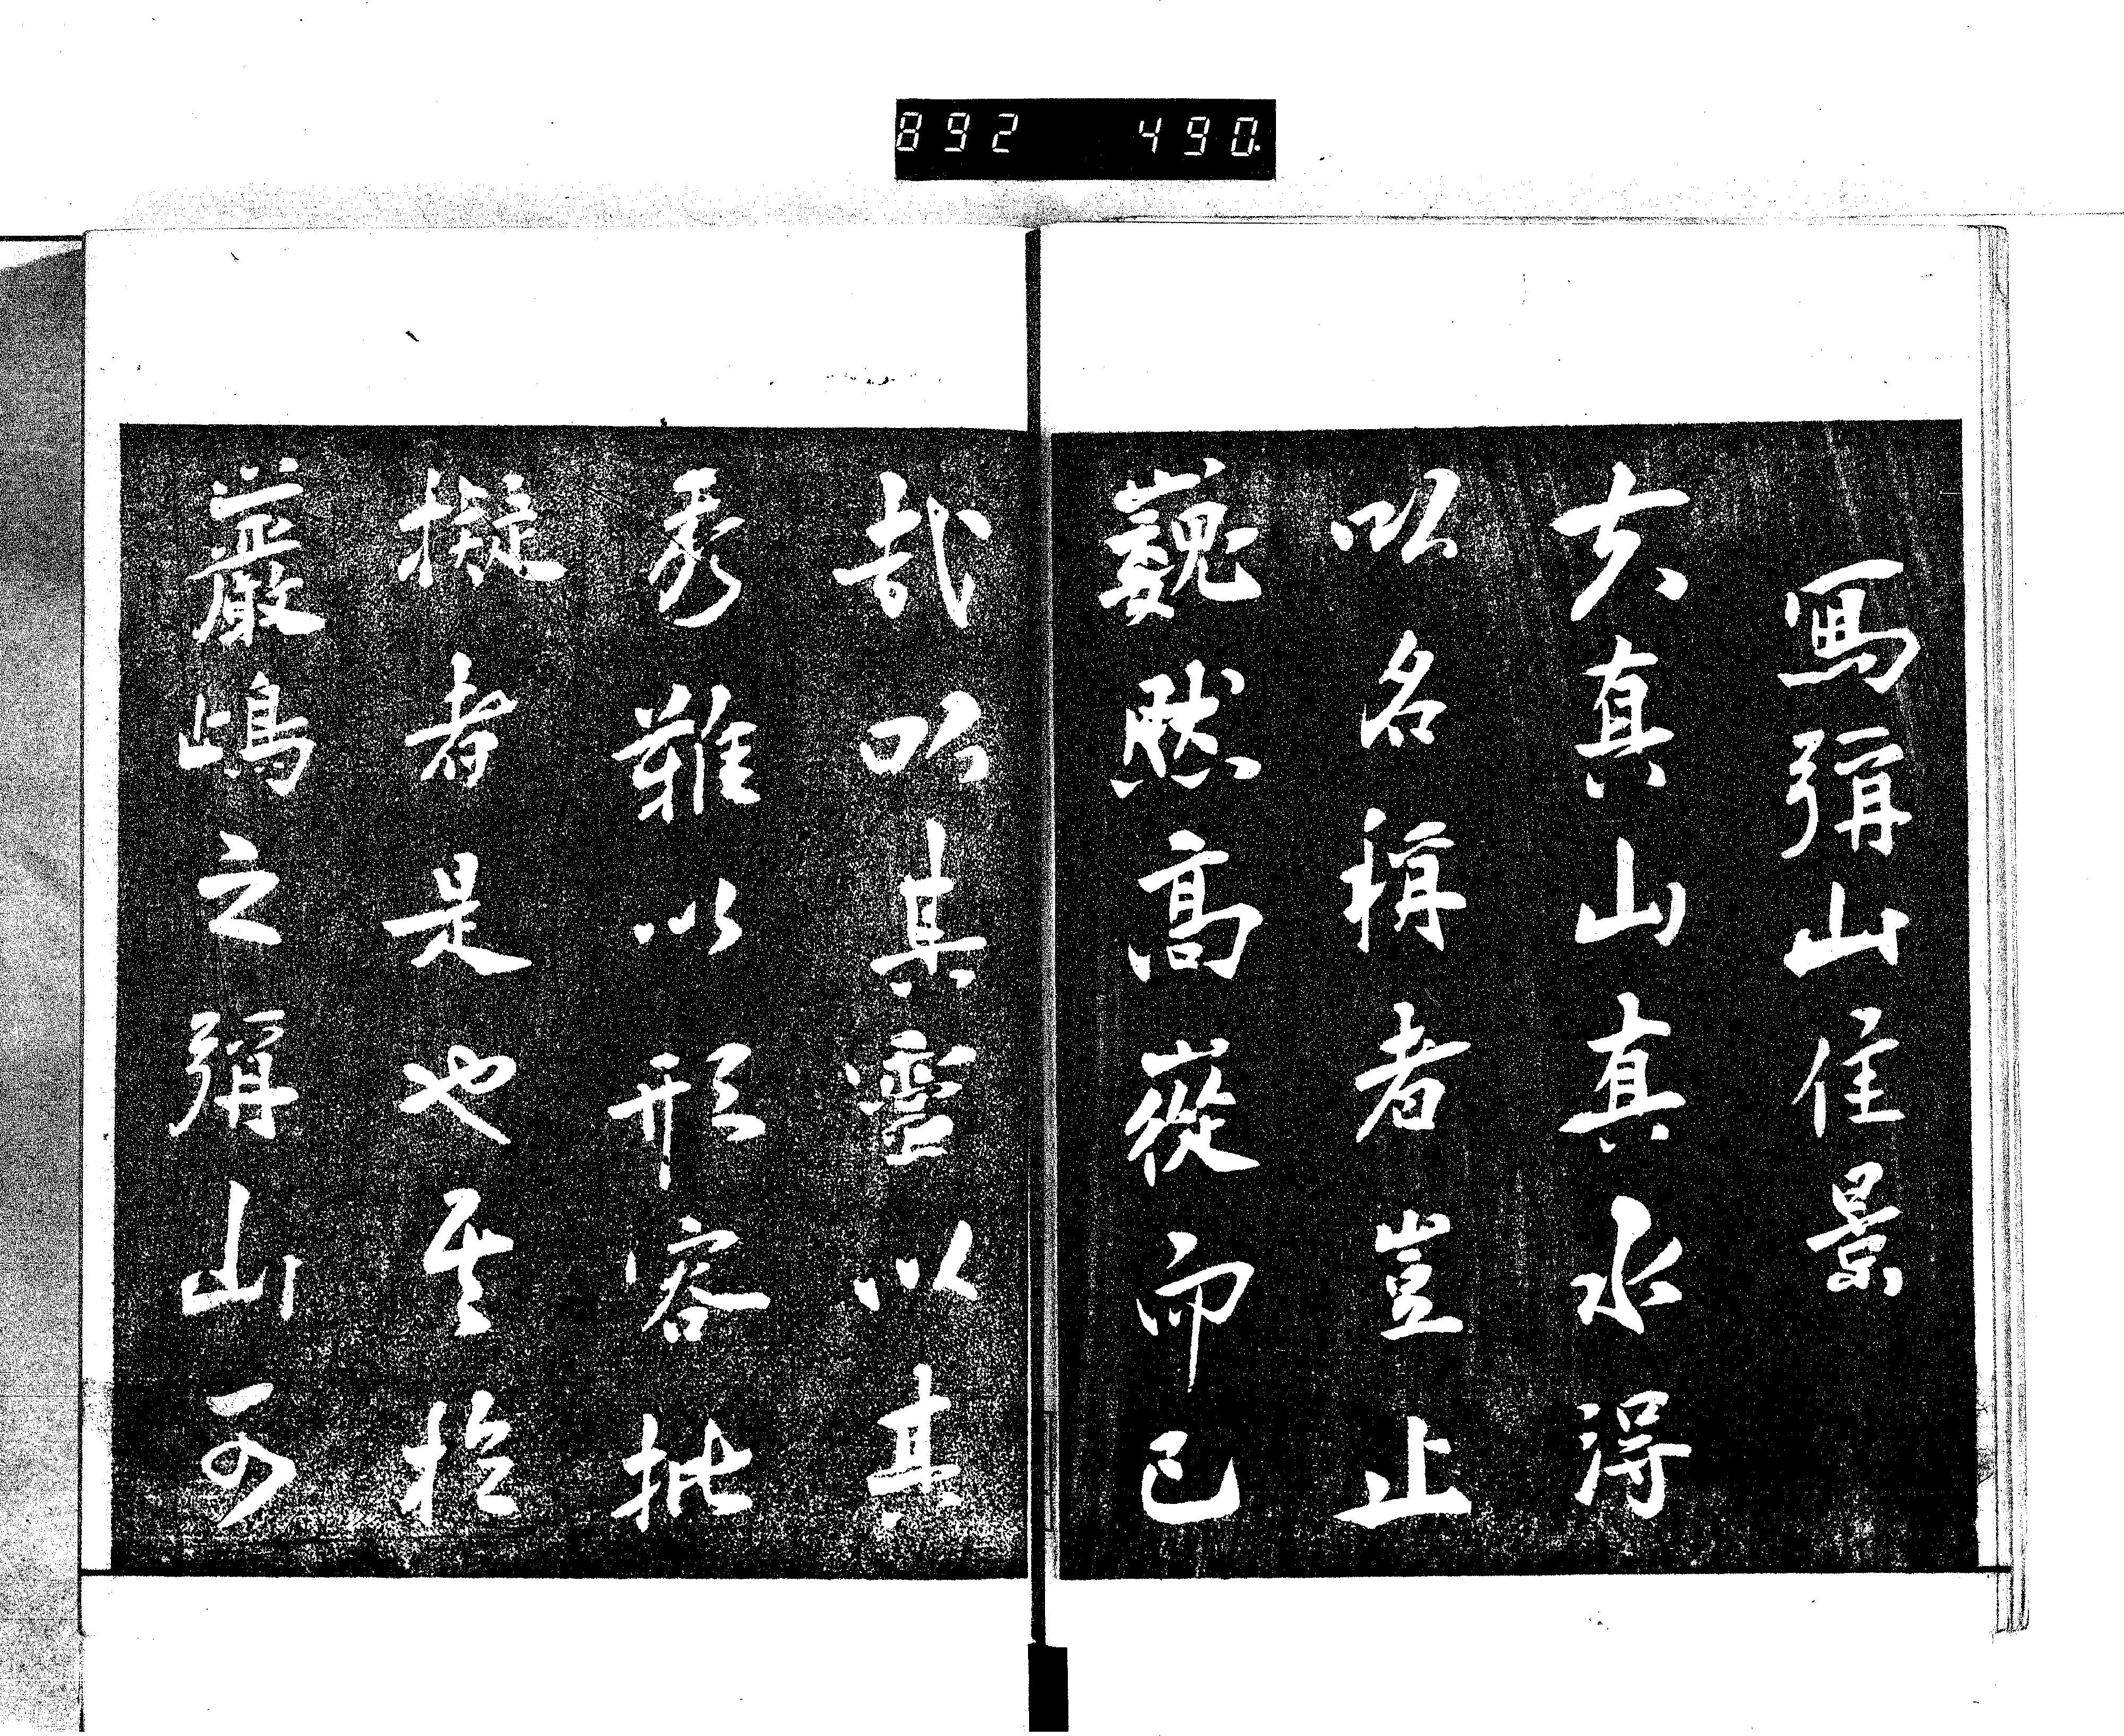 892 490
寫彌山佳景
夫真山真水得
以名稱者豈止
巍然高嵸而已
哉以其靈以其
秀難以形容批
擬者是也至於
嚴嶋之彌山可